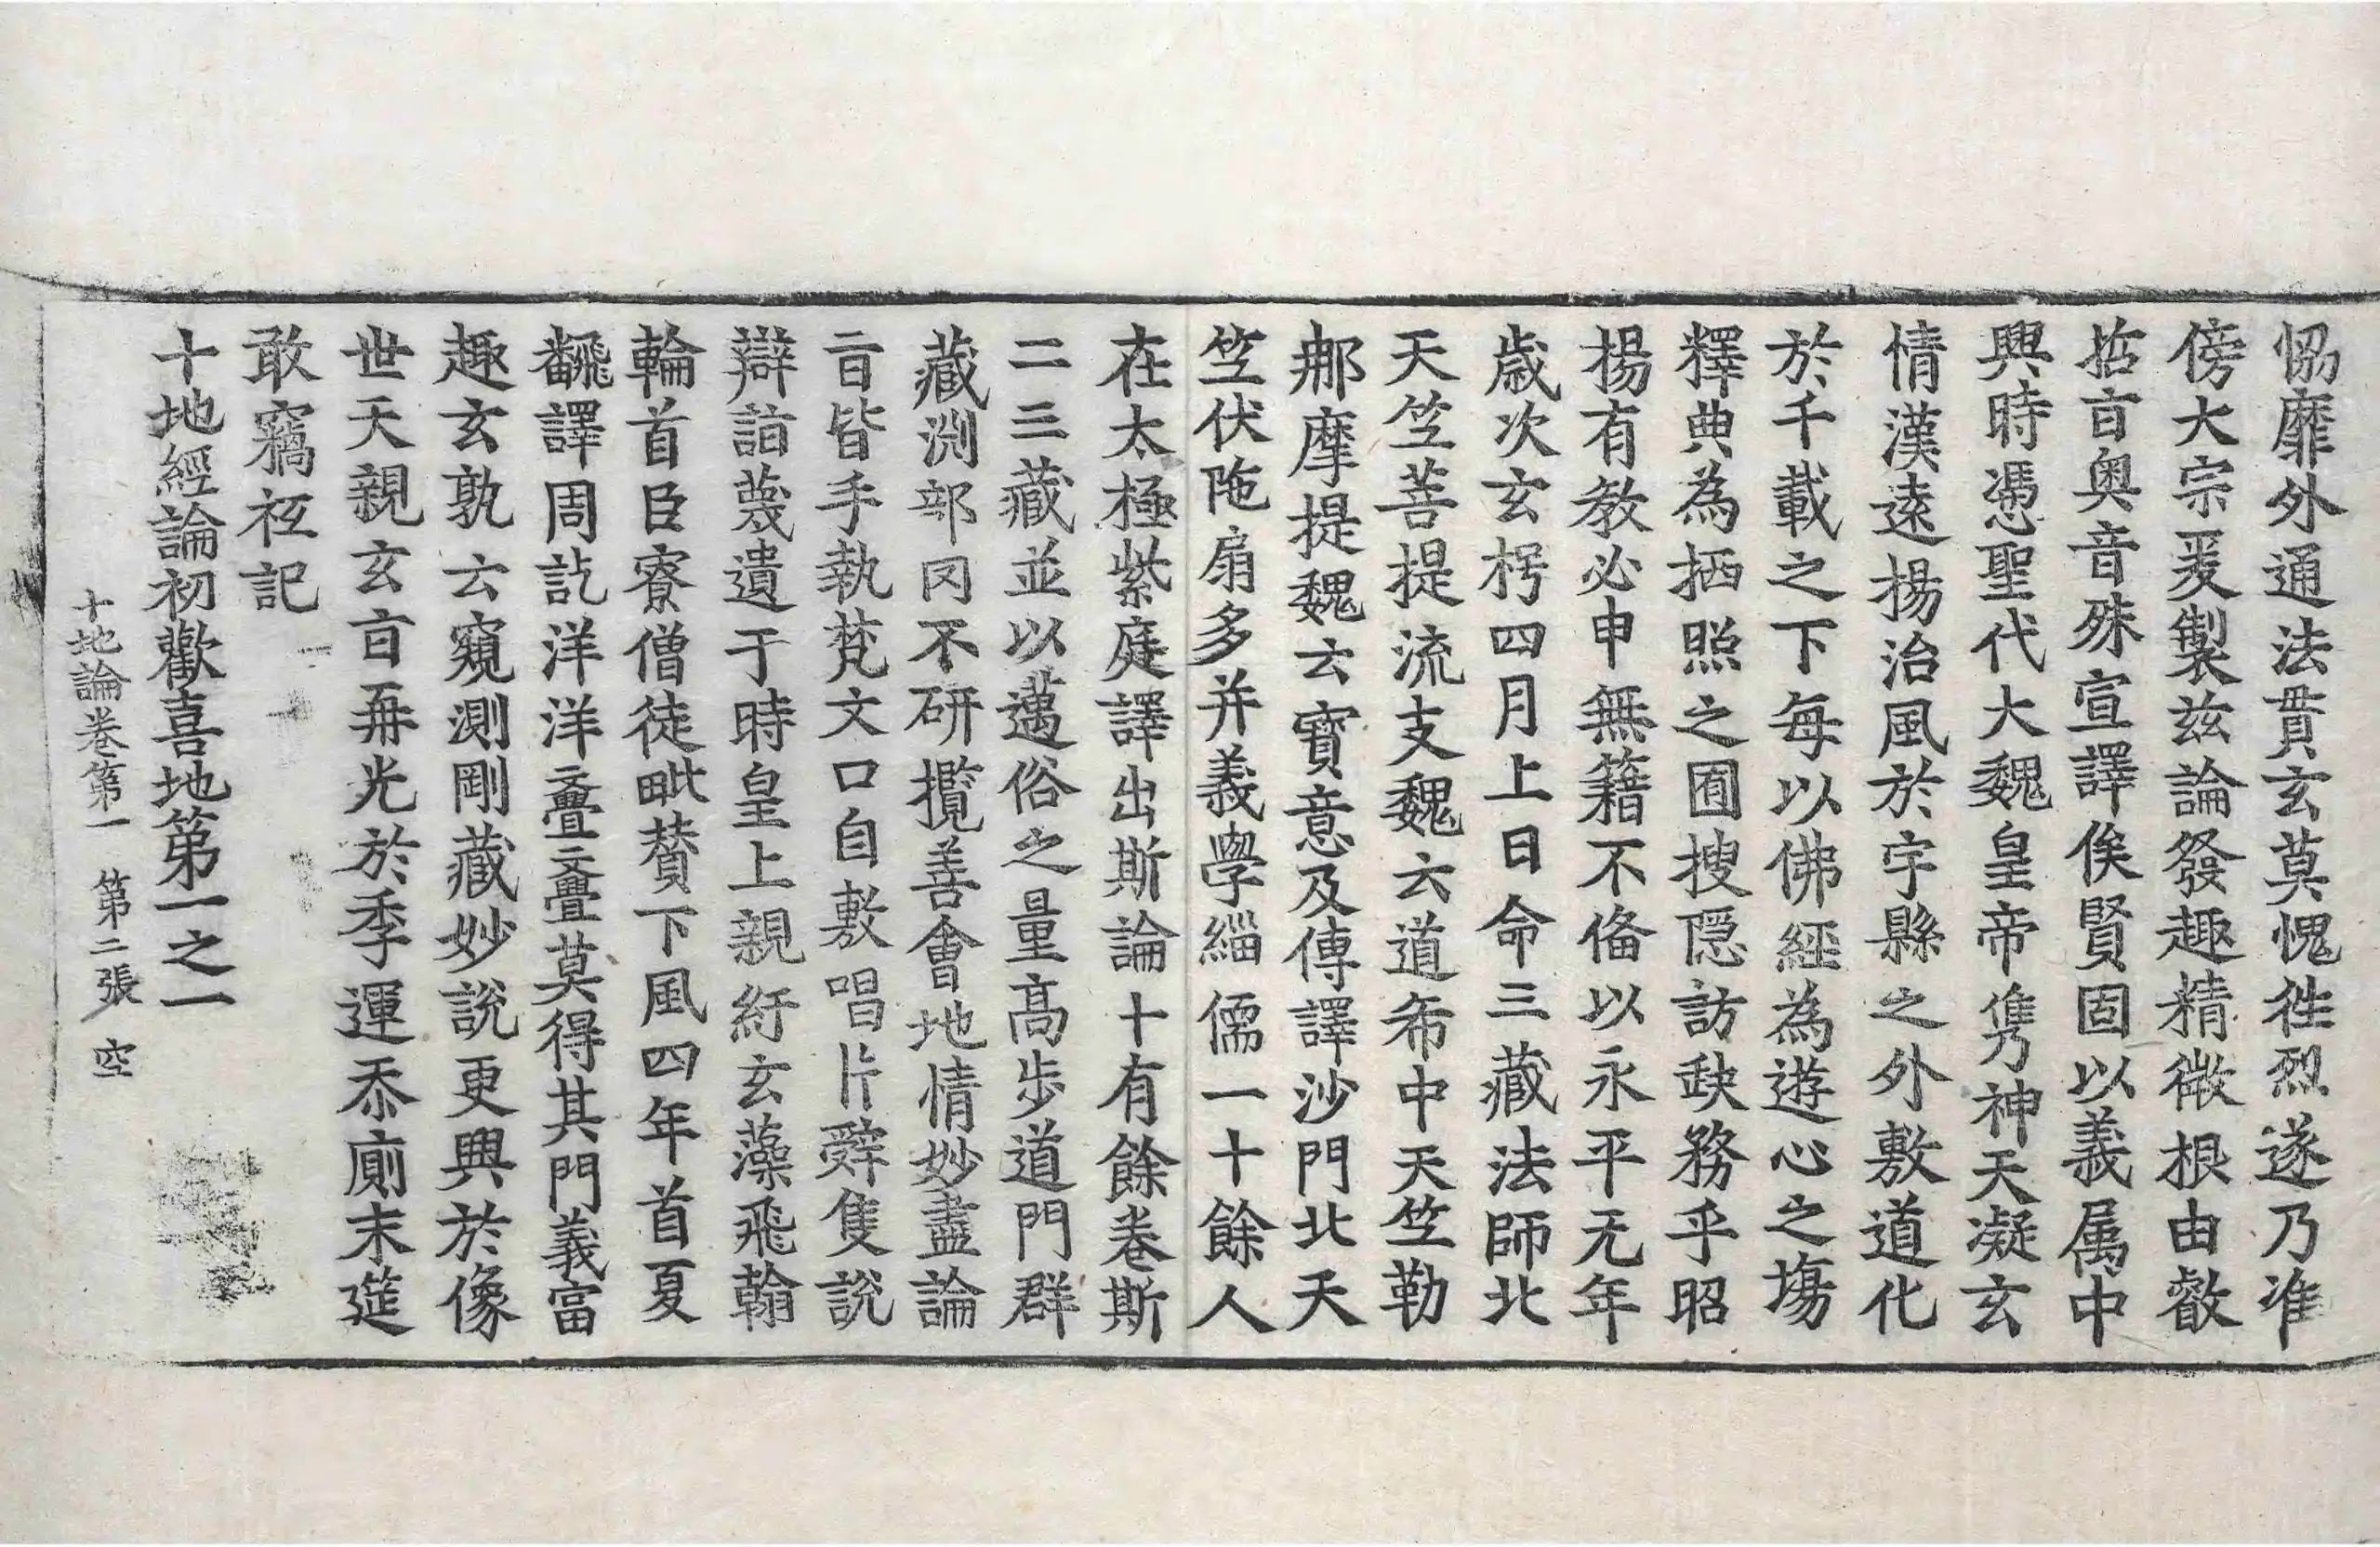 恊靡外通法貫玄莫愧徃烈遂乃准
傍大宗爰製兹論發趣精微根由叡
㧗㫖奥音殊宣譯俟賢固以義属中
興時憑聖代大魏皇帝儁神天凝玄
情漢逺揚治風於宇縣之外敷道化
於千載之下每以佛經為遊心之塲
釋典為栖照之囿搜隠訪缺務乎昭
揚有教必申無籍不俻以永平元年
歳次玄枵四月上日命三藏法師北
天笁菩提流支魏云道希中天笁勒
那摩提魏云寳意及傳譯沙門北天
笁伏陁扇多并義學緇儒一十餘人
在太極紫庭譯出斯論十有餘卷斯
二三藏並以邁俗之量髙步道門群
藏渕部罔不研攬善會地情妙盡論
㫖皆手執梵文口自敷唱片辭隻説
辯詣蔑遺于時皇上親紆玄藻飛翰
輪首臣寮僧徒毗賛下風四年首夏
飜譯周訖洋洋亹亹莫得其門義富
趣玄孰云窺測剛藏妙説更興於像
世天親玄㫖再光於季運忝廁末筵
敢竊祗記
十地經論初歡喜地第一之一
十地論卷第一 第二張 空